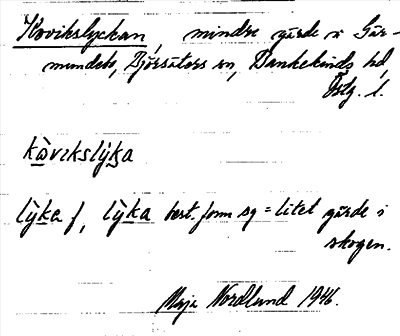 Kovikslyckan, mindre gärde i Går-
mundebo, Björsäters sn, Bankekinds hd,
Östg. l.
kòvɪkslýka
lỳka f, lỳka best. form sg = litet gärde i
skogen.
Maja Nordlund 1946.